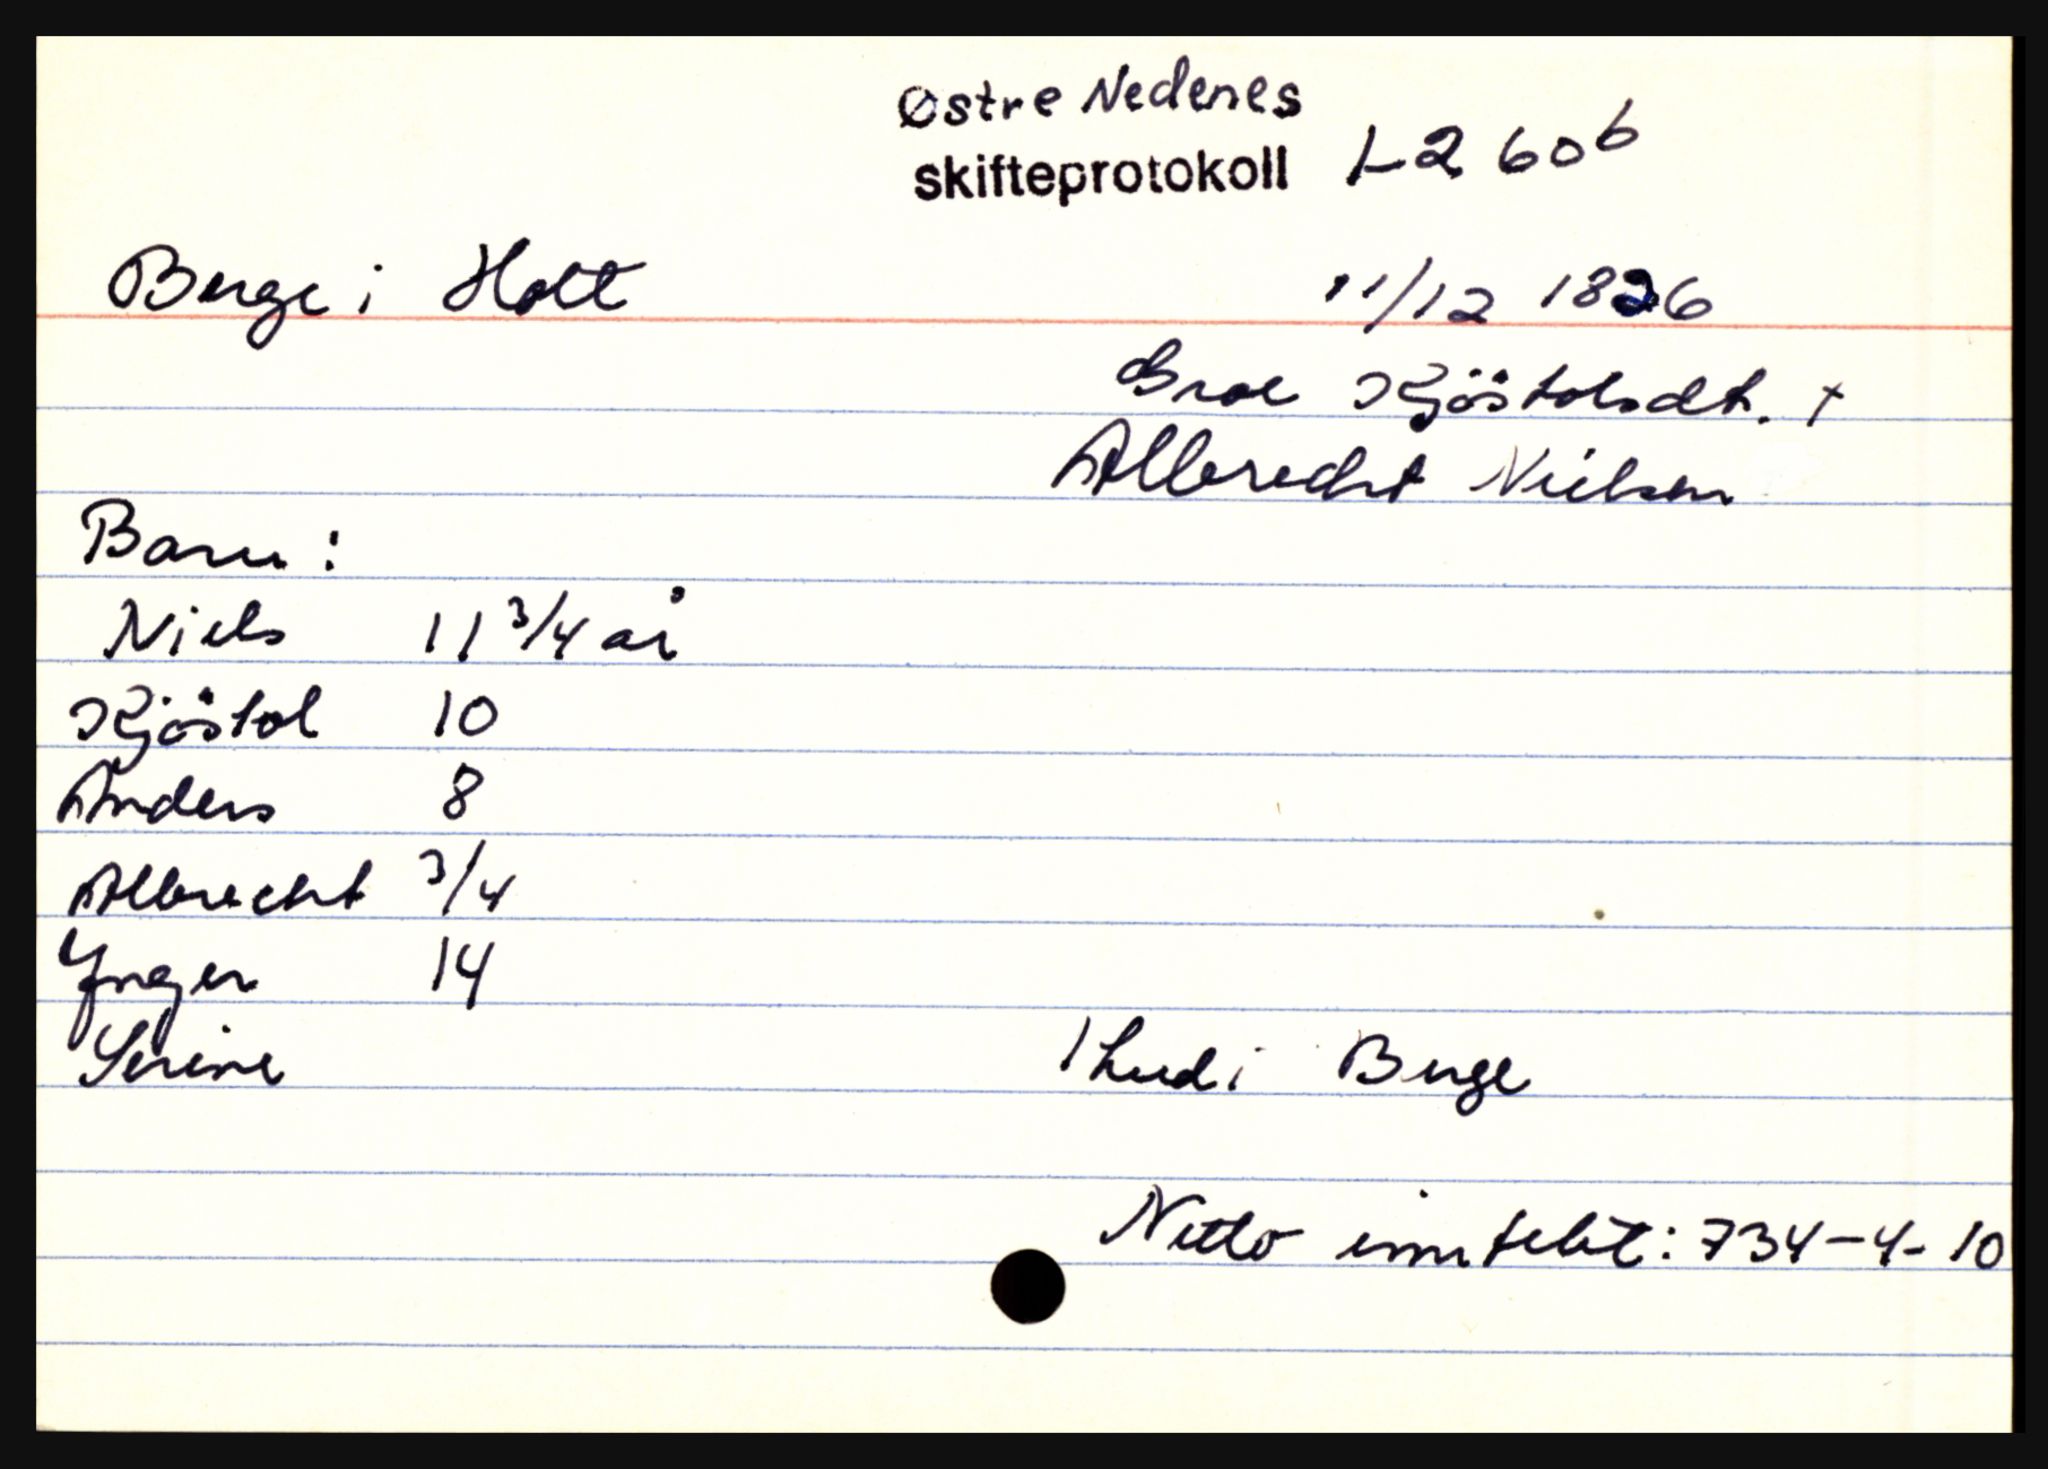 Østre Nedenes
skifteprotokoll L2 60b
Berge i Holt 11/12 1826
Groe Kjöstolsdt. +
Albrecht Nielsen
Barn:
Niels 11 3/4 år
Kjöstol 10
Anders 8
Albrecht 3/4
Ynger 14
Serine 1 hud i Berge
Netto inntekt: 734-4-10